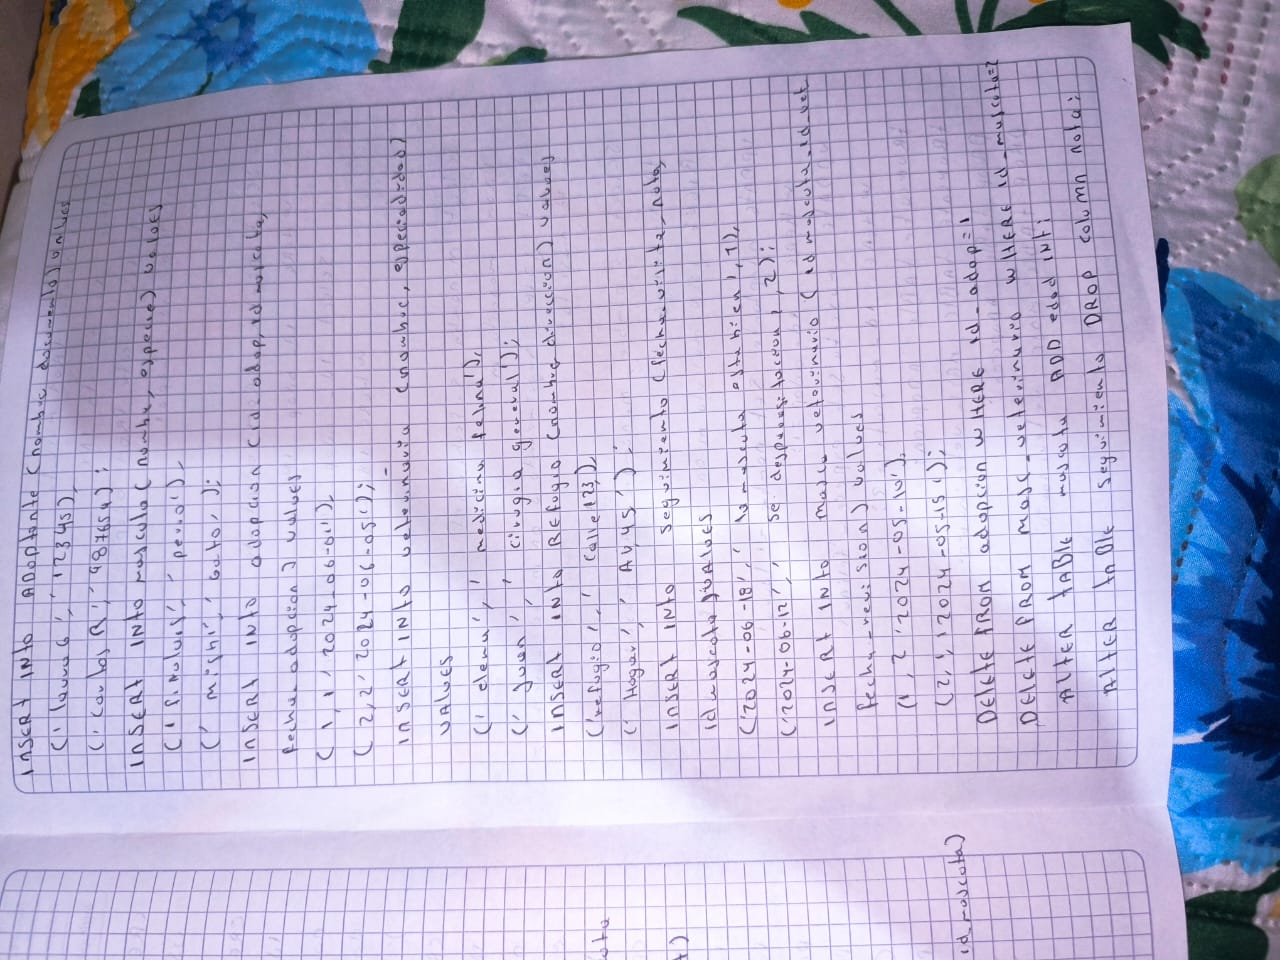 INSERT INTO Adoptante (nombre, documento) values
('laura G', '12345),
('carlos R', '987654);
INSERT INTO mascota (nombre, especie) values
('firulais', 'perro'),
('mishi', 'Gato');
INSERT INTO adopcion (id_adop, id_mascota,
fecha_adopcion) values
(1, 1, '2024-06-01'),
(2, 2, '2024-06-05');
INSERT INTO veterinario (nombre, especialidad)
VALUES
('elena', 'medicina felina'),
('Juan', 'Cirugia general');
INSERT INTO REfugio (nombre, direccion) values
('refugio', 'Calle 123),
('Hogar', 'AV, 45');
INSERT INTO seguimiento (fecha_visita, nota,
id_mascota) VALUES
('2024-06-18', 'la mascota esta bien', 1),
('2024-06-12', 'se desparasitacion, 2);
INSERT INTO masco_veterinario (id_mascota, id_vet
fecha_revision) values
(1, 2 '2024-05-10'),
(2, 1, '2024-05-15');
DELETE FROM adopcion WHERE id_adop=1
DELETE FROM masc_veterinario WHERE id_mascota=2
ALTER TABLE mascota ADD edad INT;
ALTER TABLE seguimiento DROP column nota;
ota
t)
id_mascota)